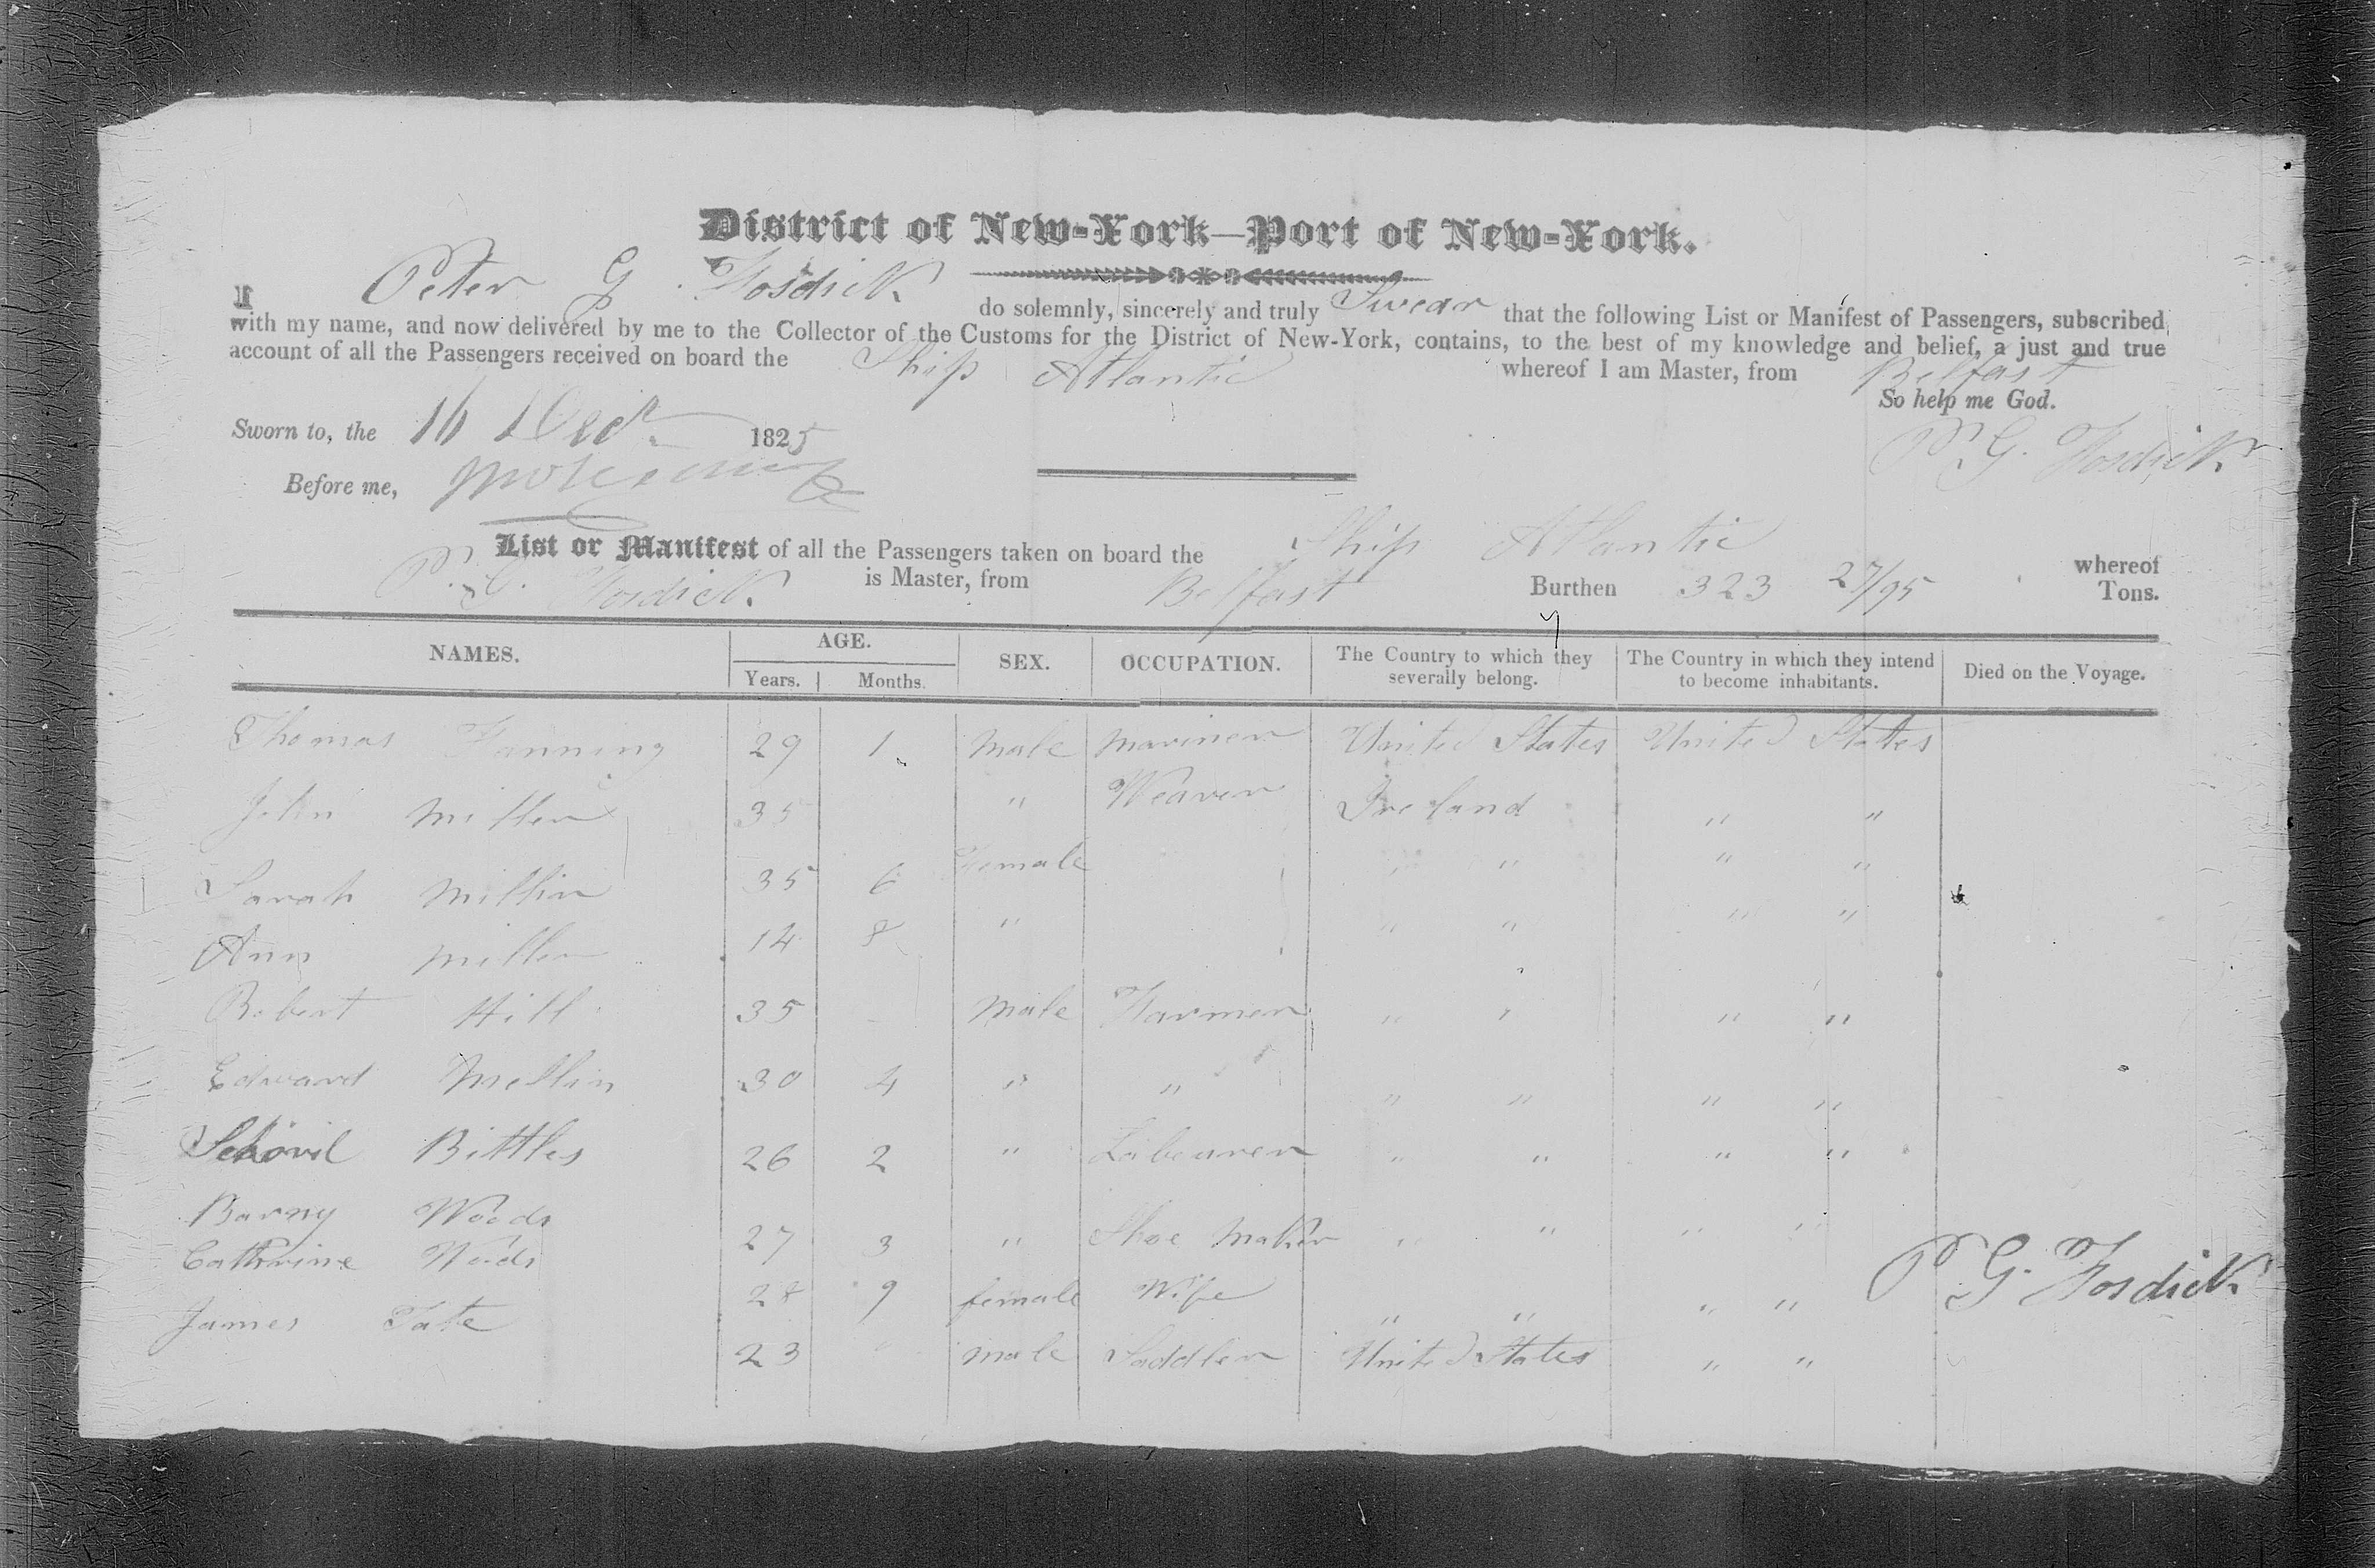 District of New-York—Port of New-York.
I Peter G. Fosdick do solemnly, sincerely and truly Swear that the following List or Manifest of Passengers, subscribed
with my name, and now delivered by me to the Collector of the Customs for the District of New-York, contains, to the best of my knowledge and belief, a just and true
account of all the Passengers received on board the Ship Atlantic whereof I am Master, from Belfast
So help me God.
Sworn to, the 16 Decr 1825
P. G. Fosdick
Before me,
List or Manifest of all the Passengers taken on board the Ship Atlantic whereof
P. G. Fosdick is Master, from Belfast Burthen 323 27/95 Tons.
NAMES. AGE. Years. Months. SEX. OCCUPATION. The Country to which they severally belong. The Country in which they intend to become inhabitants. Died on the Voyage.
Thomas Fanning 29 1 Male Mariner United States United States
John Miller 35 " Weaver Ireland " "
Sarah Millin 35 6 Female " " " "
Ann Miller 14 8 " " " " "
Robert Hill 35 Male Farmer " " " "
Edward Mellin 30 4 " " " " " "
Bittles 26 2 " Labourer " " " "
Barny Woods 27 3 " Shoe Maker " " " "
Catharine Woods 28 9 female Wife " " " "
James Tate 23 male Saddler United States " "
P. G. Fosdick